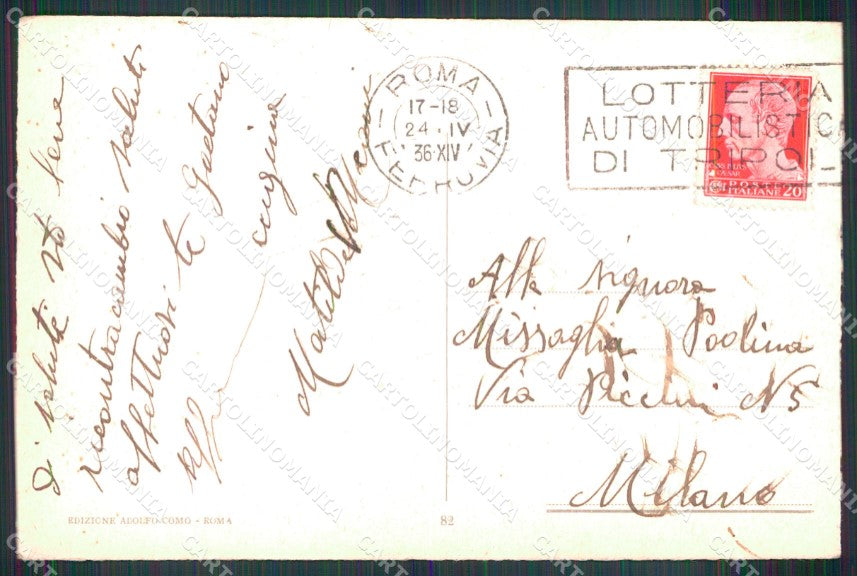 di salute sto bene
ricontracambio saluti
affettuosi te Gaetano
Aff cugina
Matilde
EDIZIONE ADOLFO COMO - ROMA
82
ROMA
17-18
24·IV
36·XIV
FERROVIA
LOTTERIA
AUTOMOBILISTICA
DI TRIPOLI
POSTE
ITALIANE 20
Alla signora
Missaglia Paolina
Via Piccini N5
Milano
CARTOLINOMANIA